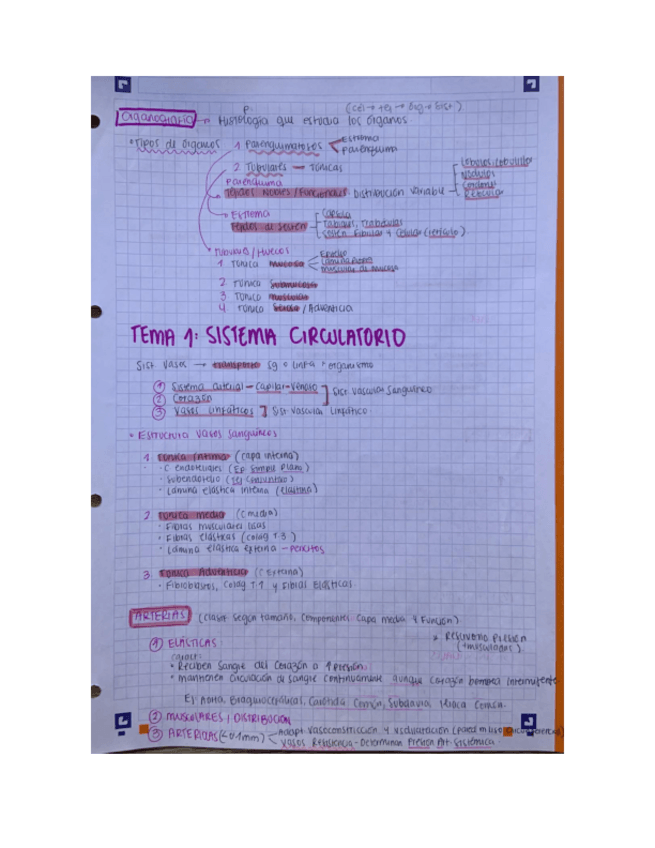 Organografía → Histología que estudia los órganos
(cél → tej → órg → sist)
• Tipos de órganos
1. Parenquimatosos
Estroma
Parénquima
2. Tubulares — Túnicas
Parénquima
Tejidos Nobles / Funcionales. Distribución variable
Lóbulos, lobulillos
Nódulos
Cordones
Estroma
Tejidos de sostén
Cápsula
Tabiques, trabéculas
Sostén fibrilar y celular (retículo)
Tubulares / Huecos
1. Túnica mucosa
Epitelio
Lámina propia
Muscular de mucosa
2. Túnica Submucosa
3. Túnica muscular
4. Túnica Serosa / Adventicia
TEMA 1: SISTEMA CIRCULATORIO
Sist. Vasos → transporte sg o linfa organismo
① Sistema arterial - capilar - venoso
② Corazón
Sist vascular sanguíneo
③ Vasos linfáticos
Sist vascular linfático.
• Estructura vasos sanguíneos
1. Túnica íntima (capa interna)
· C endoteliales (Ep simple plano)
· Subendotelio (Tej conjuntivo)
· Lámina elástica interna (elastina)
2. Túnica media (C media)
· Fibras musculares lisas
· Fibras elásticas (colag 1 3)
· Lámina elástica externa - pericitos
3. Túnica Adventicia (C Externa)
· Fibroblastos, Colag T.1 y Fibras Elásticas.
ARTERIAS (Clasif según tamaño, componentes capa media y Función).
① ELÁSTICAS:
Reservorio Presión
(+musculadas)
caract:
• Reciben sangre del corazón a ↑ presión.
• mantienen circulación de sangre continuamente aunque corazón bombea intermitente
Ej: Aorta, Braquiocefálicas, Carótida Común, Subclavia, Ilíaca Común.
② MUSCULARES / DISTRIBUCIÓN
③ ARTERIOLAS (<0'1mm)
Adapt. vasoconstricción y vsdilatación (pared m liso circunferencial)
Vasos Resistencia - Determinan Presión Art. Sistémica